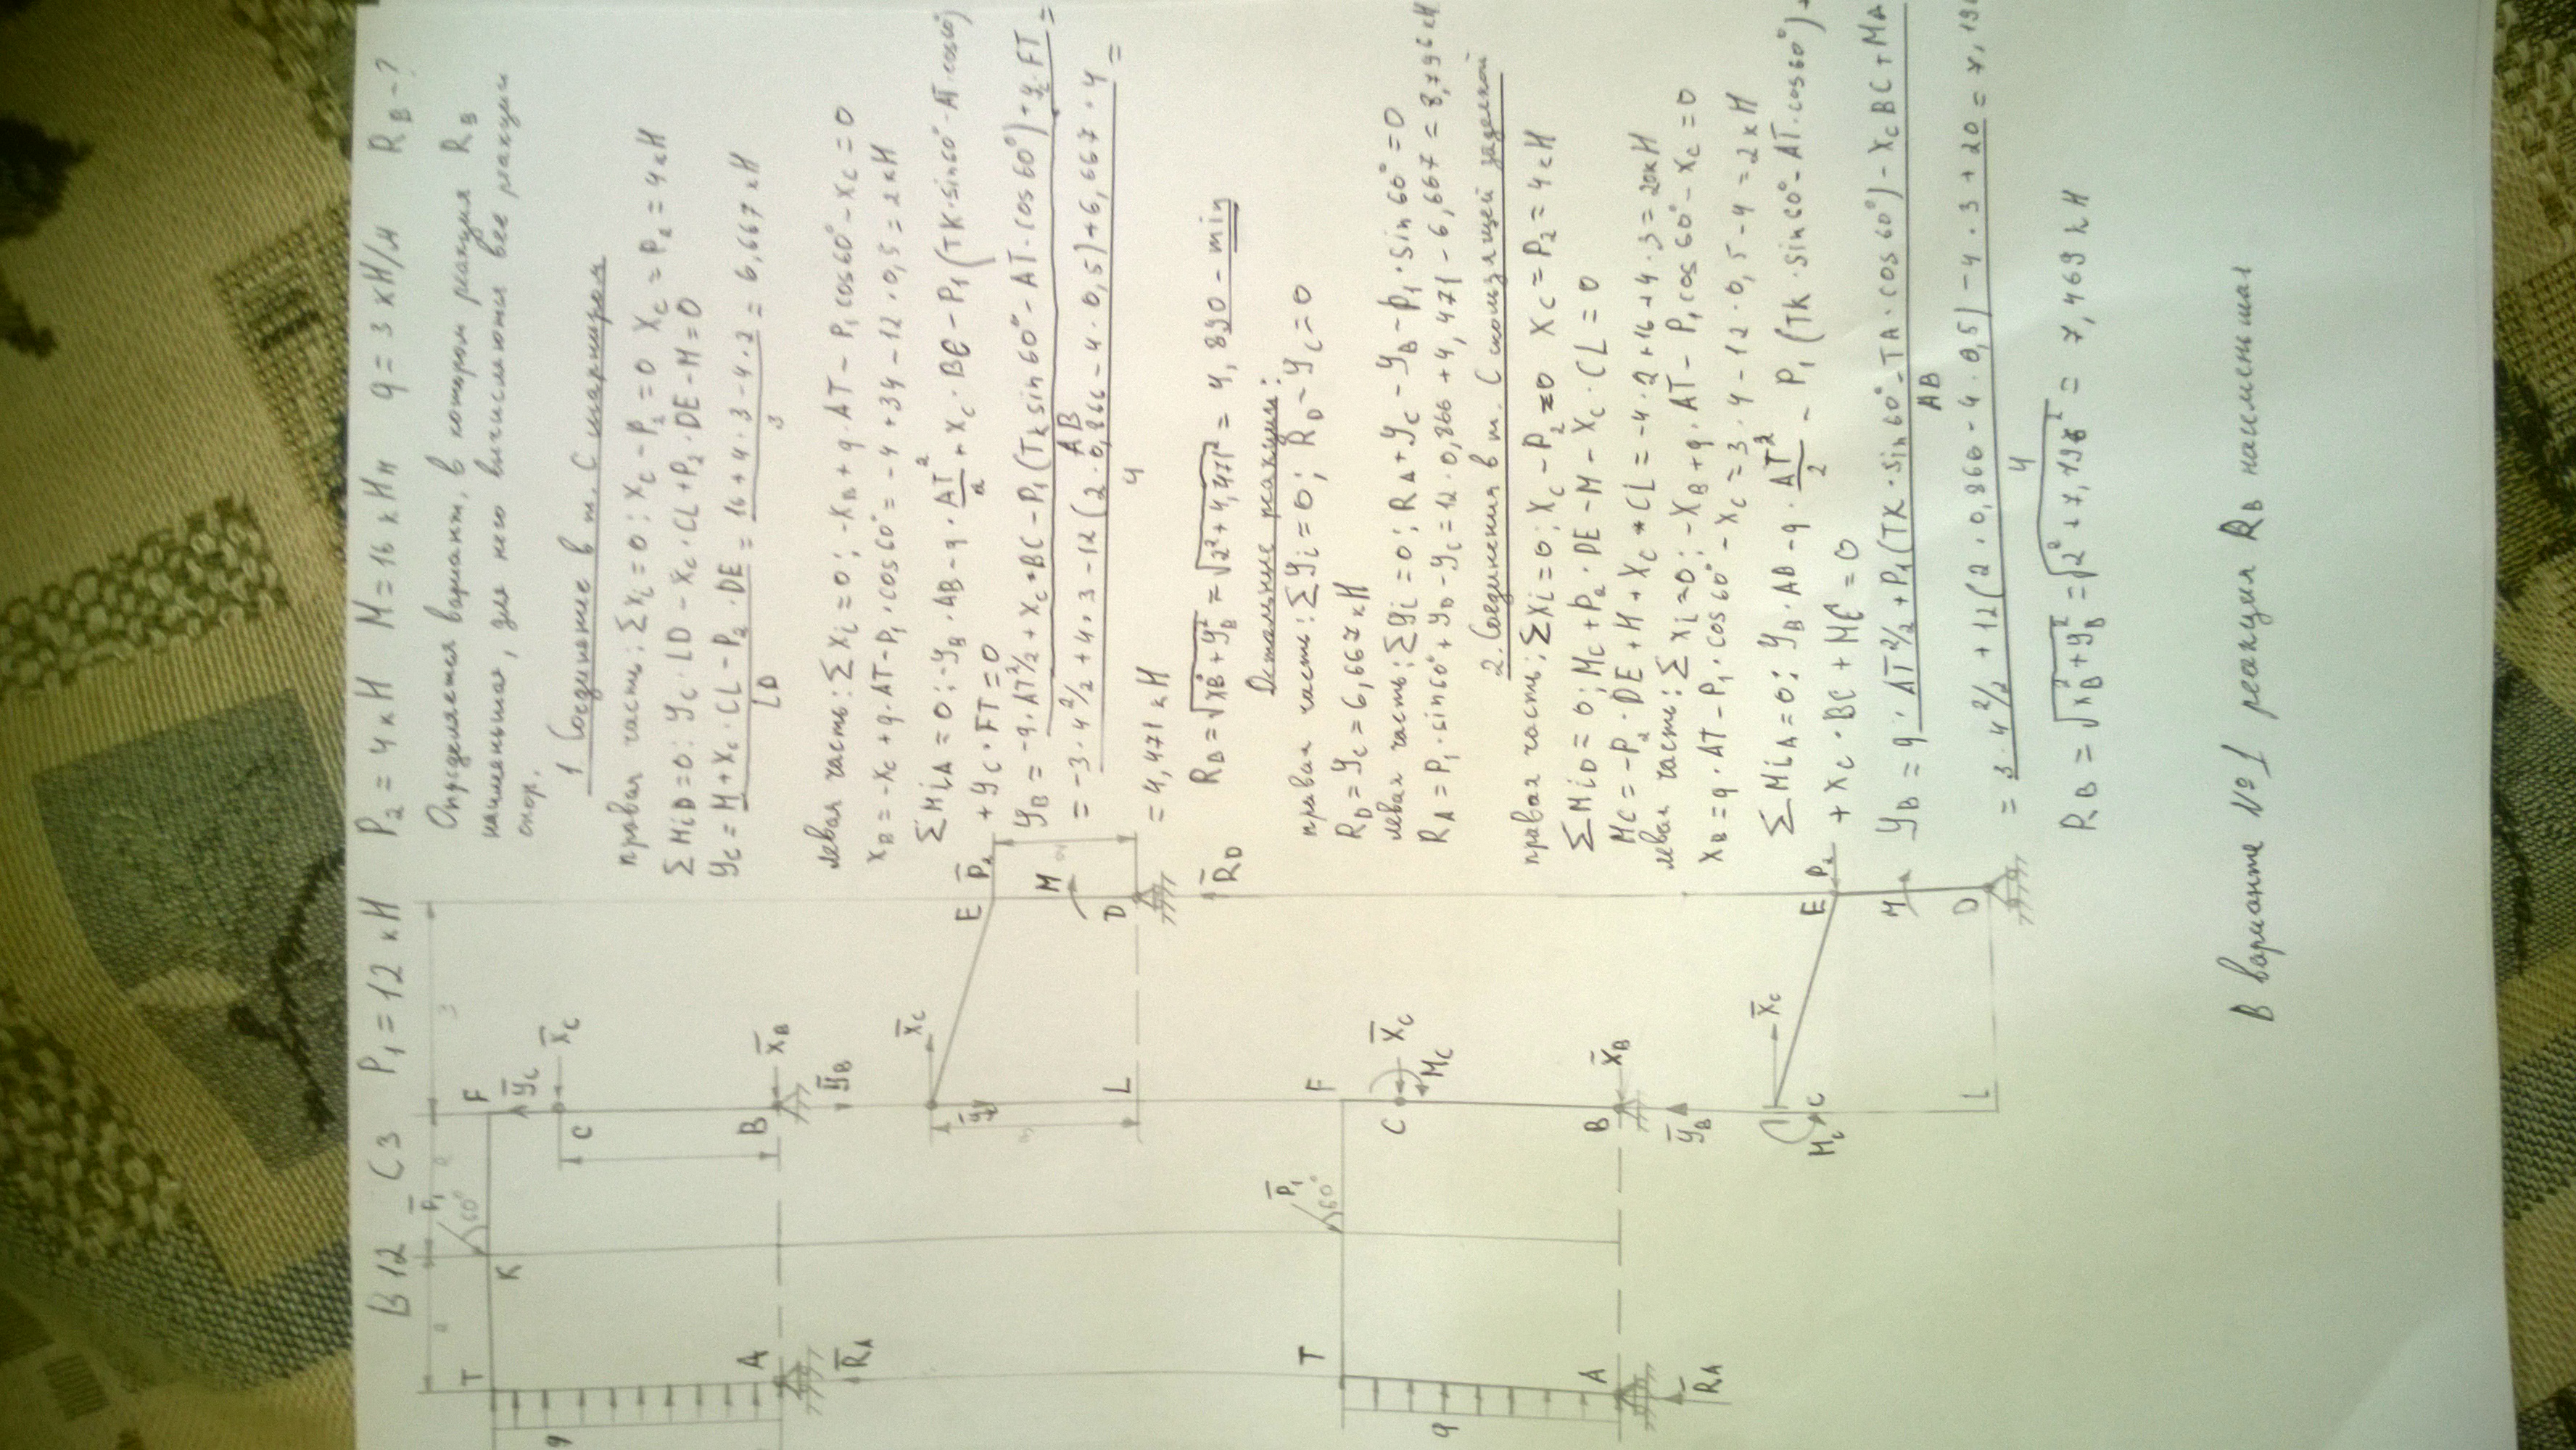 В 12 С3 P₁ = 12 кН P₂ = 4 кН М = 16 кНм q = 3 кН/м R_B - ?
Определяется вариант, в котором реакция R_B
наименьшая, для него вычисляются все реакции
опор.
1 Соединение в т. С шарниром
правая часть: ΣXᵢ = 0: X_C - P₂ = 0 X_C = P₂ = 4 кН
ΣM_iD = 0: y_C · LD - X_C · CL + P₂ · DE - M = 0
y_C = (M + X_C · CL - P₂ · DE) / LD = (16 + 4 · 3 - 4 · 2) / 3 = 6,667 кН
левая часть: ΣXᵢ = 0; -X_B + q · AT - P₁ cos60° - X_C = 0
X_B = -X_C + q · AT - P₁ · cos60° = -4 + 34 - 12 · 0,5 = 2 кН
ΣM_iA = 0: -y_B · AB - q · AT²/2 + X_C · BC - P₁ (TK · sin60° - AT · cos60°)
+ y_C · FT = 0
y_B = (-q · AT²/2 + X_C · BC - P₁ (TK sin60° - AT · cos60°) + y_C · FT) / AB =
= (-3 · 4²/2 + 4 · 3 - 12 (2 · 0,866 - 4 · 0,5) + 6,667 · 4) / 4 =
= 4,471 кН
R_B = √(X_B² + y_B²) = √(2² + 4,471²) = 4,890 - min
Остальные реакции:
правая часть: Σyᵢ = 0; R_D - y_C = 0
R_D = y_C = 6,667 кН
левая часть: Σyᵢ = 0; R_A + y_C - y_B - P₁ · sin60° = 0
R_A = P₁ · sin60° + y_B - y_C = 12 · 0,866 + 4,471 - 6,667 = 8,796 кН
2. Соединения в т. С скользящей заделкой
правая часть: ΣXᵢ = 0; X_C - P₂ = 0 X_C = P₂ = 4 кН
ΣM_iD = 0; M_C + P₂ · DE - M - X_C · CL = 0
M_C = -P₂ · DE + M + X_C * CL = -4 · 2 + 16 + 4 · 3 = 20 кН
левая часть: ΣXᵢ = 0: -X_B + q · AT - P₁ cos60° - X_C = 0
X_B = q · AT - P₁ · cos60° - X_C = 3 · 4 - 12 · 0,5 - 4 = 2 кН
ΣM_iA = 0: y_B · AB - q · AT²/2 - P₁ (TK · sin60° - AT · cos60°) +
+ X_C · BC + M_C = 0
y_B = (q · AT²/2 + P₁ (TK · sin60° - TA · cos60°) - X_C BC + M_A) / AB
= (3 · 4²/2 + 12 (2 · 0,866 - 4 · 0,5) - 4 · 3 + 20) / 4 = 7,19
R_B = √(X_B² + y_B²) = √(2² + 7,196²) = 7,469 кН
В варианте № 1 реакция R_B наименьшая
T K F P₁ 60° y_C X_C C B X_B y_B A R_A q 2 2 3
X_C y_C L E P₂ M D R_D
T F P₁ 60° C X_C M_C B X_B y_B A R_A q
X_C M_C C L E P₂ M D